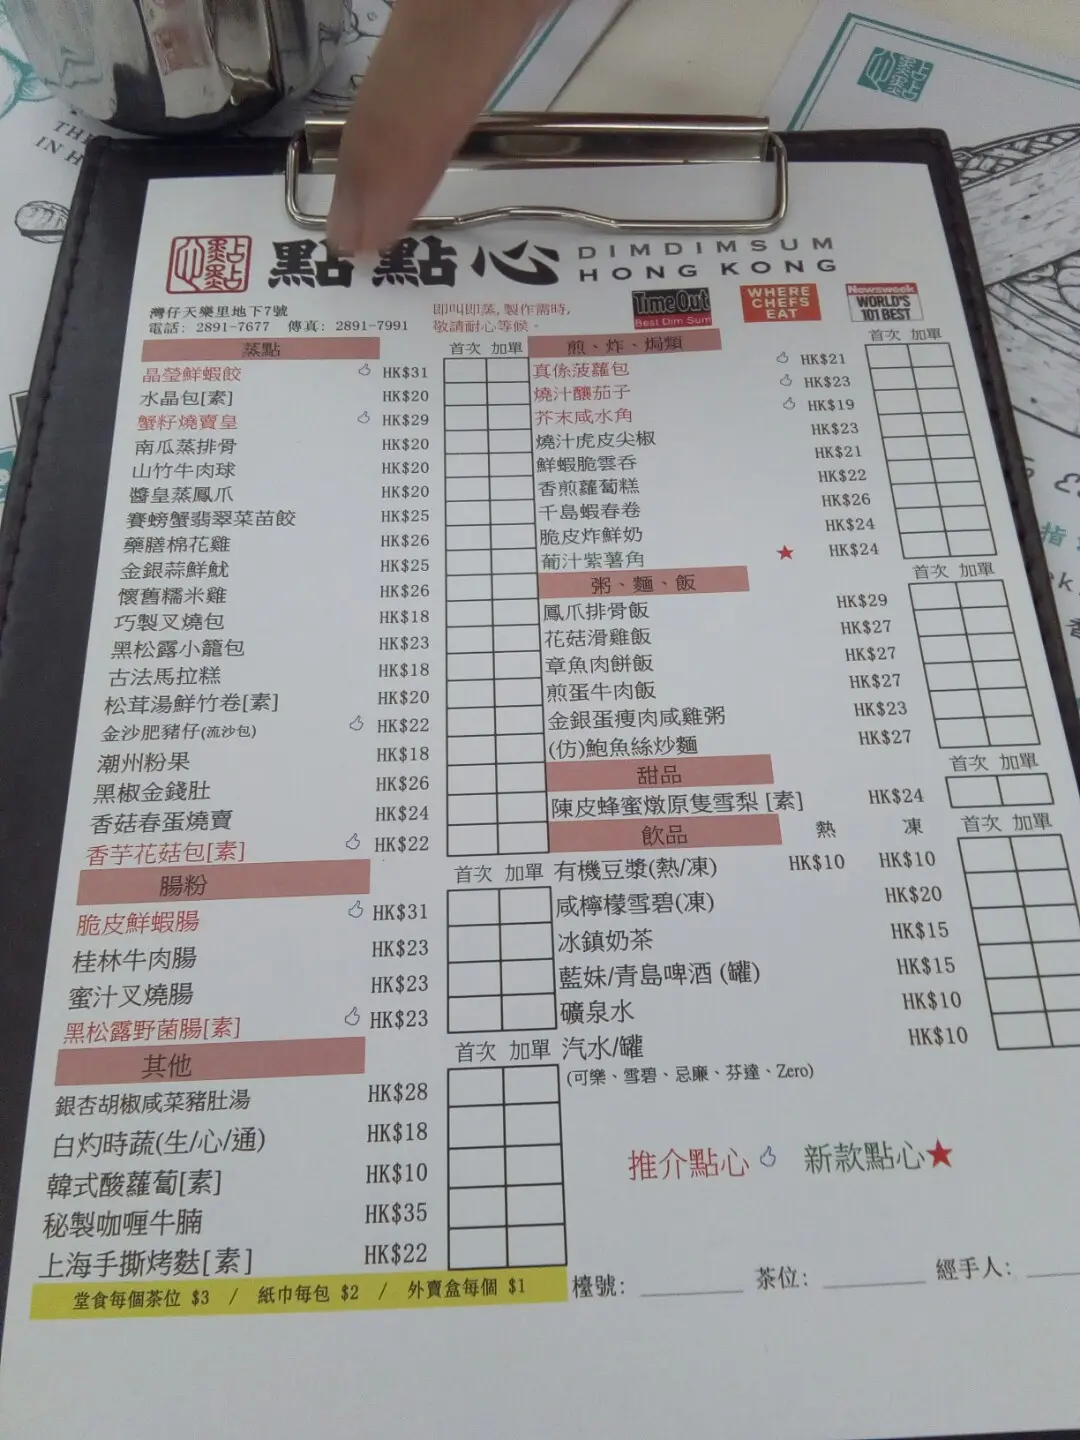 THE
IN H
點點心
點點心 DIMDIMSUM
HONG KONG
灣仔天樂里地下7號
電話: 2891-7677 傳真: 2891-7991
即叫即蒸, 製作需時,
敬請耐心等候。
Time Out
Best Dim Sum
WHERE
CHEFS
EAT
Newsweek
WORLD'S
101 BEST
蒸點 首次 加單
晶瑩鮮蝦餃 HK$31
水晶包[素] HK$20
蟹籽燒賣皇 HK$29
南瓜蒸排骨 HK$20
山竹牛肉球 HK$20
醬皇蒸鳳爪 HK$20
賽螃蟹翡翠菜苗餃 HK$25
藥膳棉花雞 HK$26
金銀蒜鮮魷 HK$25
懷舊糯米雞 HK$26
巧製叉燒包 HK$18
黑松露小籠包 HK$23
古法馬拉糕 HK$18
松茸湯鮮竹卷[素] HK$20
金沙肥豬仔(流沙包) HK$22
潮州粉果 HK$18
黑椒金錢肚 HK$26
香菇春蛋燒賣 HK$24
香芋花菇包[素] HK$22
腸粉 首次 加單
脆皮鮮蝦腸 HK$31
桂林牛肉腸 HK$23
蜜汁叉燒腸 HK$23
黑松露野菌腸[素] HK$23
其他 首次 加單
銀杏胡椒咸菜豬肚湯 HK$28
白灼時蔬(生/心/通) HK$18
韓式酸蘿蔔[素] HK$10
秘製咖喱牛腩 HK$35
上海手撕烤麩[素] HK$22
堂食每個茶位 $3 / 紙巾每包 $2 / 外賣盒每個 $1
煎、炸、焗類 首次 加單
真係菠蘿包 HK$21
燒汁釀茄子 HK$23
芥末咸水角 HK$19
燒汁虎皮尖椒 HK$23
鮮蝦脆雲吞 HK$21
香煎蘿蔔糕 HK$22
千島蝦春卷 HK$26
脆皮炸鮮奶 HK$24
葡汁紫薯角 ★ HK$24
粥、麵、飯 首次 加單
鳳爪排骨飯 HK$29
花菇滑雞飯 HK$27
章魚肉餅飯 HK$27
煎蛋牛肉飯 HK$27
金銀蛋瘦肉咸雞粥 HK$23
(仿)鮑魚絲炒麵 HK$27
甜品 首次 加單
陳皮蜂蜜燉原隻雪梨 [素] HK$24
飲品 熱 凍 首次 加單
有機豆漿(熱/凍) HK$10 HK$10
咸檸檬雪碧(凍) HK$20
冰鎮奶茶 HK$15
藍妹/青島啤酒 (罐) HK$15
礦泉水 HK$10
汽水/罐 HK$10
(可樂、雪碧、忌廉、芬達、Zero)
推介點心 新款點心★
檯號: 茶位: 經手人:
點點心
指